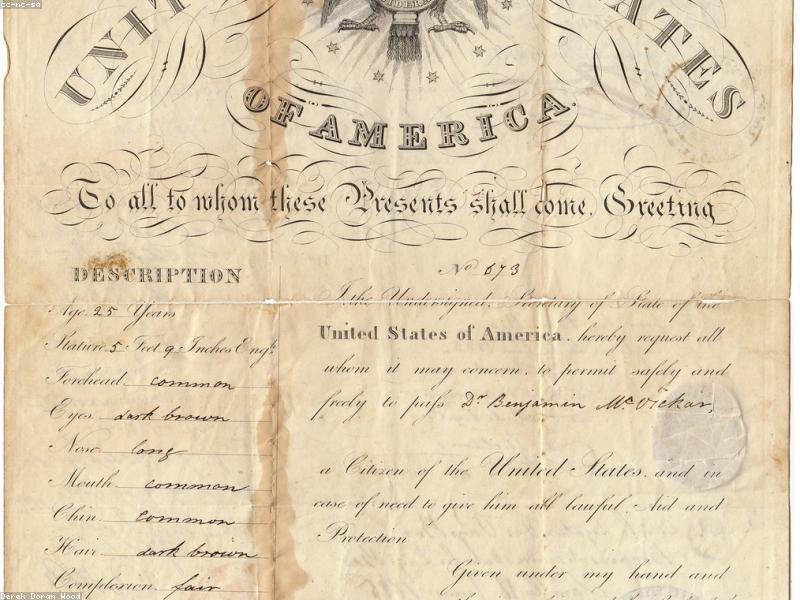 cc-nc-sa
UNITED STATES
OF AMERICA.
To all to whom these Presents shall come, Greeting
No 673
DESCRIPTION
Age 25 Years
Stature 5 Feet 9 Inches Engh.
Forehead common
Eyes dark brown
Nose long
Mouth common
Chin common
Hair dark brown
Complexion fair
I the Undersigned, Secretary of State of the
United States of America, hereby request all
whom it may concern, to permit safely and
freely to pass Dr Benjamin Mc.Vickar,
a Citizen of the United States, and in
case of need to give him all lawful Aid and
Protection
Given under my hand and
Derek Doran Wood